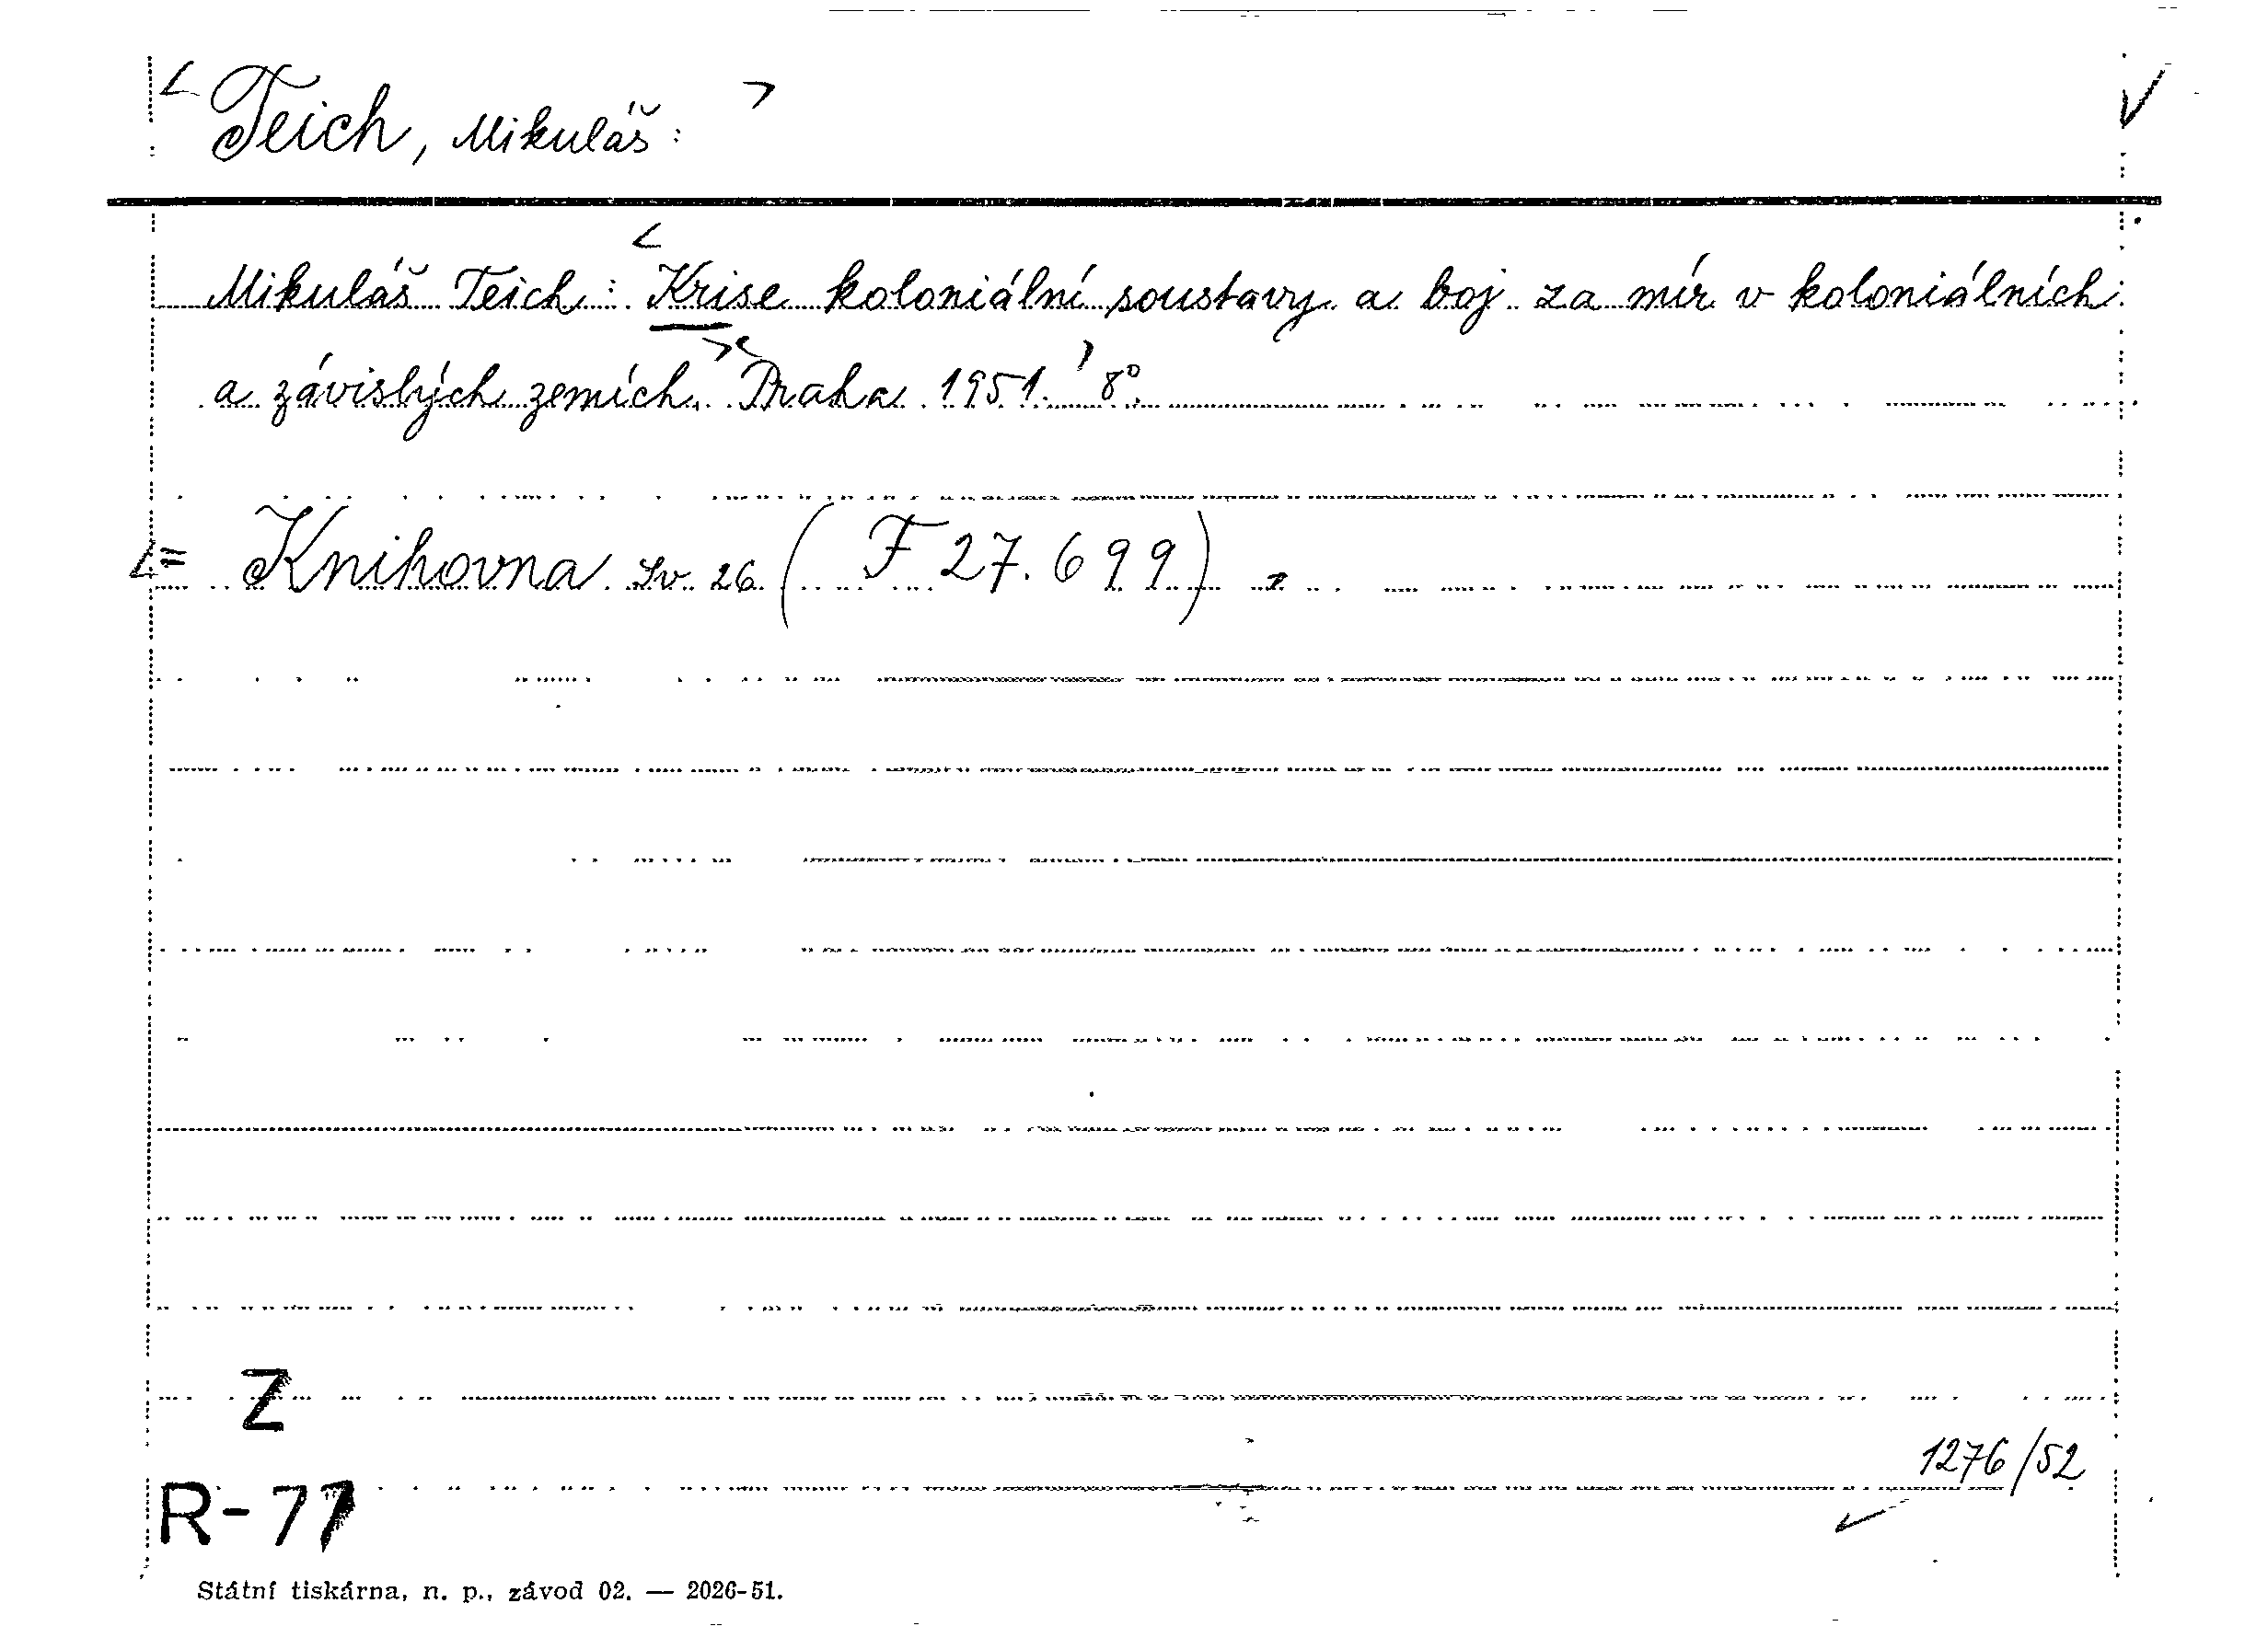 < Teich, Mikuláš: >
Mikuláš Teich: Krise koloniální soustavy a boj za mír v koloniálních
a závislých zemích. Praha 1951. 8°.
= Knihovna Sv. 26 (F 27.699)
Z
1276/52
R-77
Státní tiskárna, n. p., závod 02. — 2026-51.